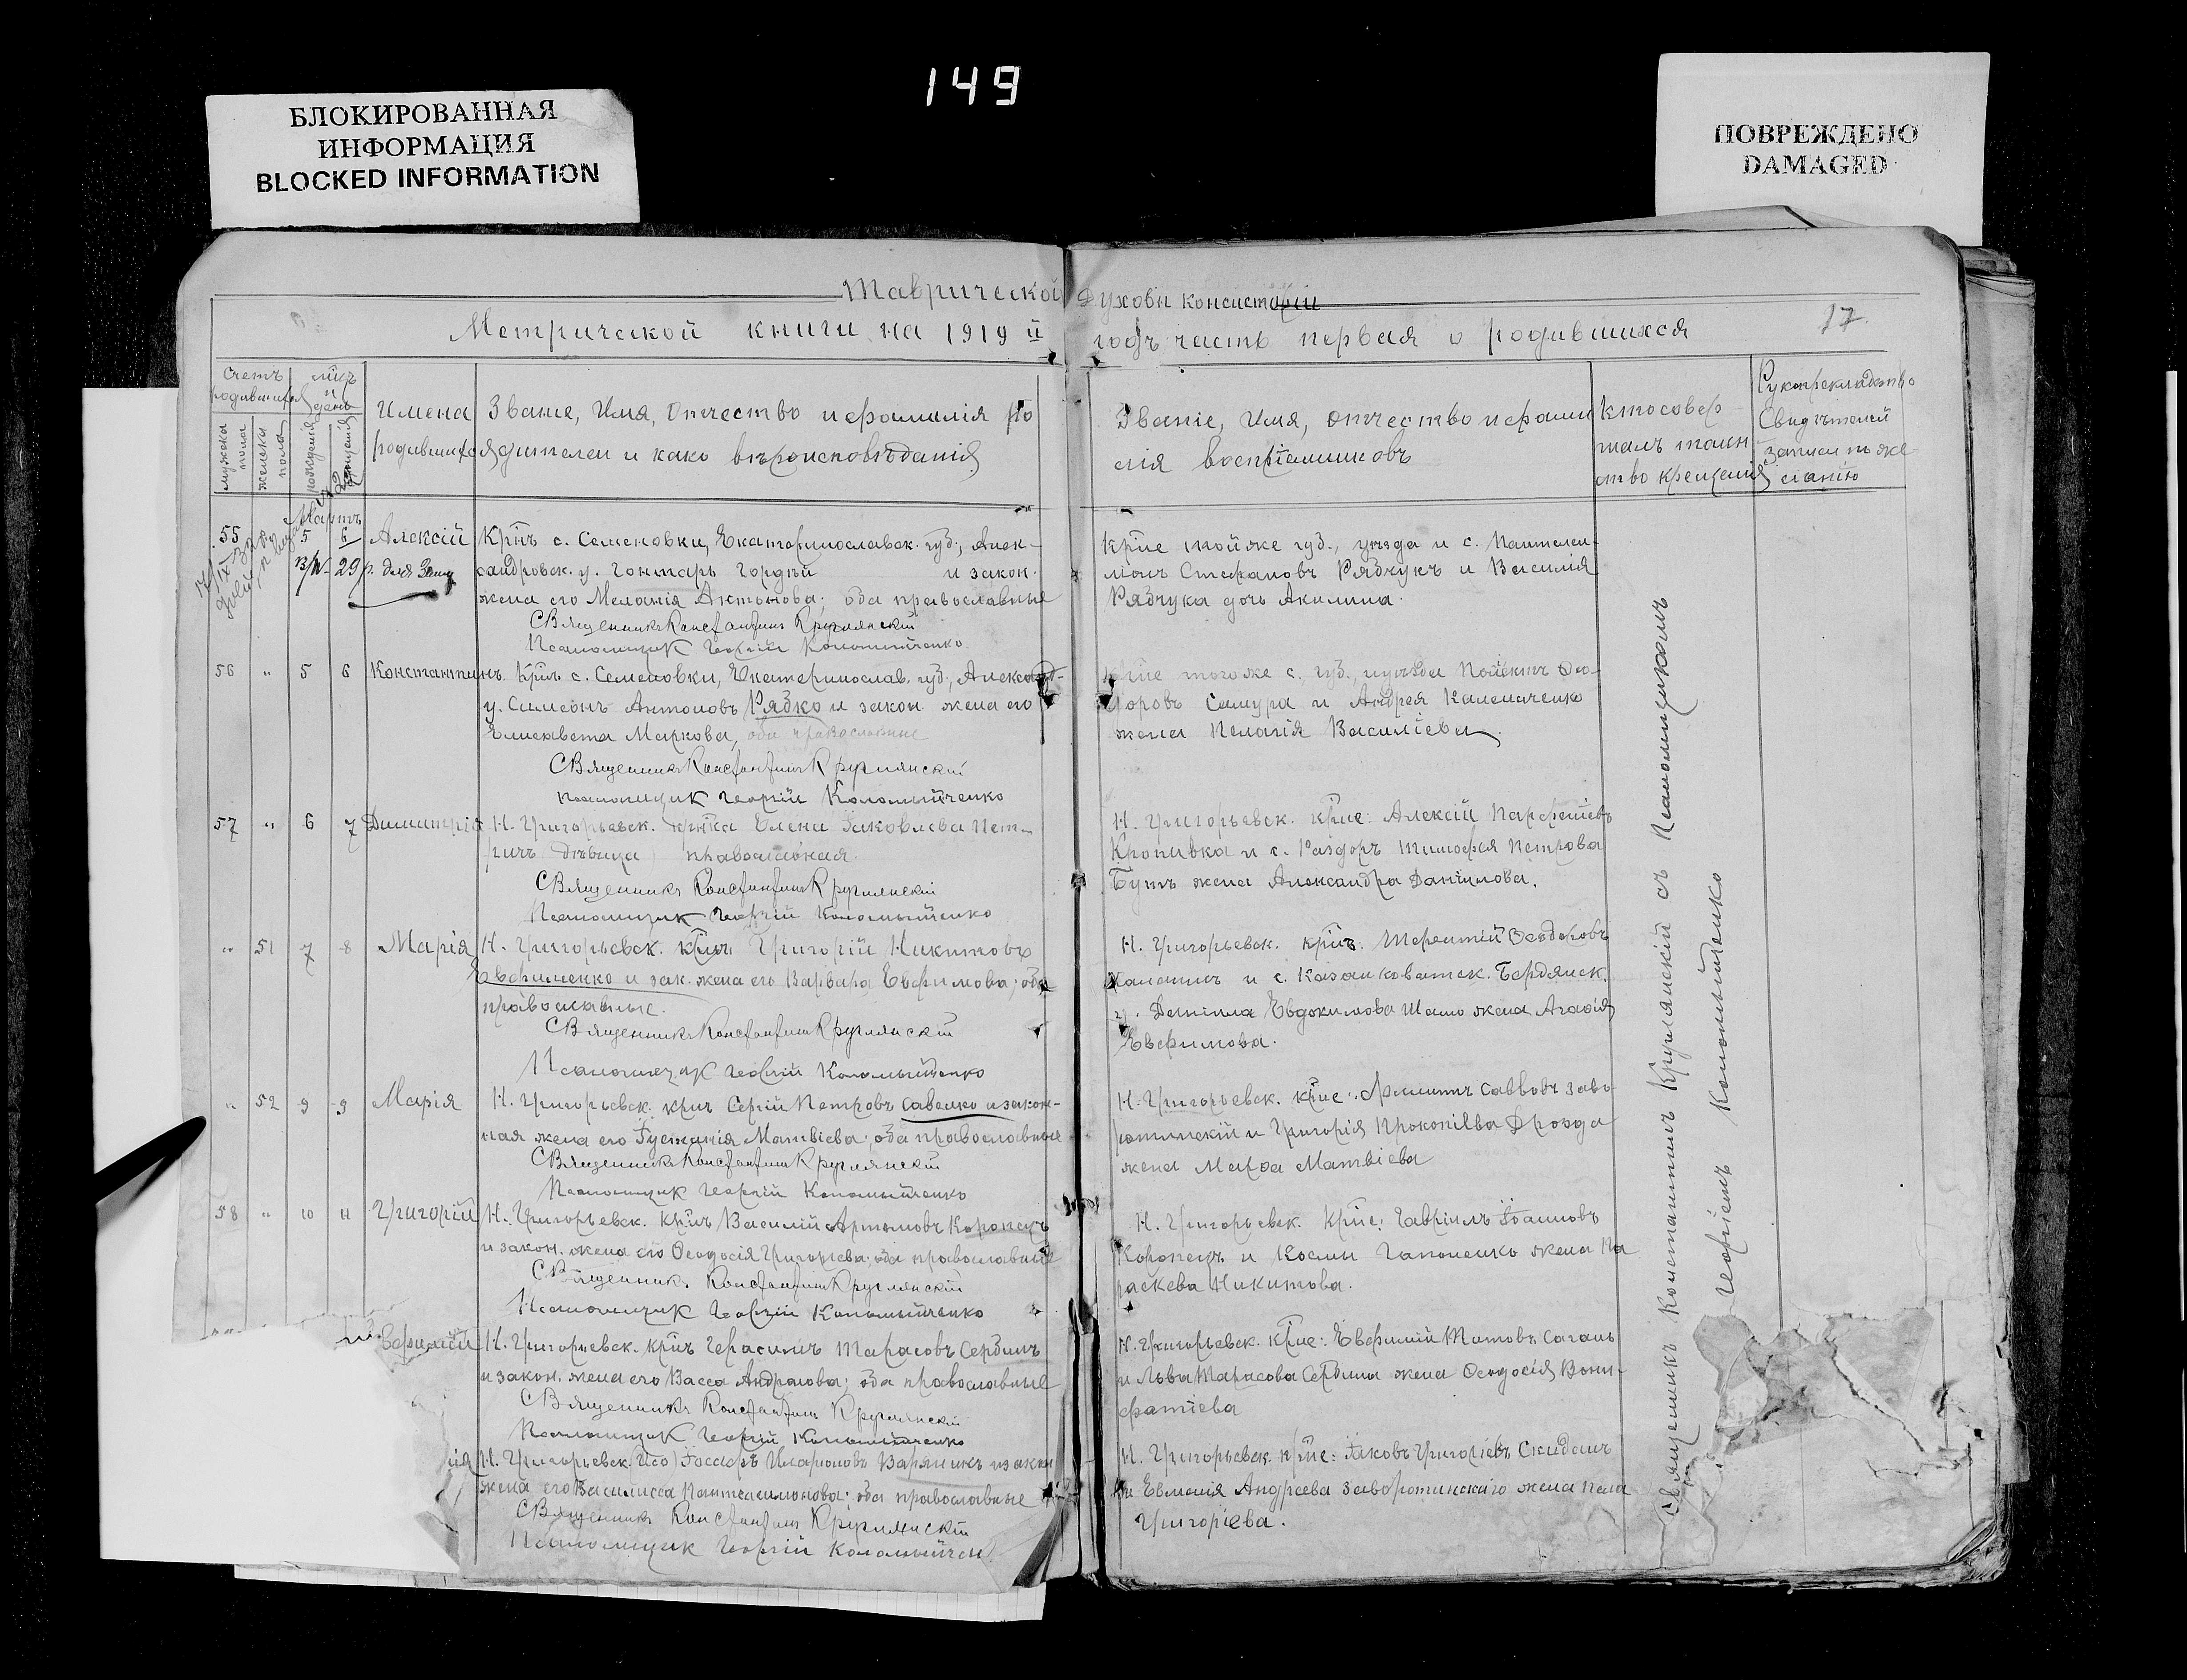 149
БЛОКИРОВАННАЯ
ИНФОРМАЦИЯ
BLOCKED INFORMATION
ПОВРЕЖДЕНО
DAMAGED
Таврической Духовн Консисторіи
Метрической книги на 1919 й годъ часть первая о родившихся
17.
Счетъ родившихся
мужска пола
женска пола
рожденія
крещенія
Имена родившихся
Званіе, Имя, Отчество и фамилія ро
дителей и како вѣроисповѣданія
Званіе, Имя, Отчество и фами
лія воспріемниковъ
Кто совер-
шалъ таин
ство крещенія
Рукоприкладство
Свидѣтелей
записи по же
ланію
Мартъ
55 5 6 Алексій Крнъ с. Семеновки, Екатеринославск. губ., Алек-
сандровск. у. Гонтарь Гордѣй и закон.
жена его Меланія Антонова; оба православные
Священникъ Константинъ Круглянскій
Псаломщик Георгій Коломыйченко
Крне той же губ., уѣзда и с. Пантелеи-
монъ Стефановъ Рябчукъ и Василія
Рябчука дочь Акилина.
56 " 5 6 Константинъ Крнъ с. Семеновки, Екатеринослав. губ., Александ-
у. Симеонъ Антоновъ Рябко и закон жена его
Елисавета Маркова, оба православные
Священникъ Константинъ Круглянскій
Псаломщик Георгій Коломыйченко
Крне того же с., губ., и уѣзда
Самура и Андрея
жена Пелагія Василіева
57 " 6 7 Димитрій Н. Григорьевск. крнка Елена Іаковлева Пет-
ричъ дѣвица православная
Священникъ Константинъ Круглянскій
Псаломщик Георгій Коломыйченко
Н. Григорьевск. крне: Алексій Парфеніевъ
Кропивка и с. Раздоръ Тимофея Петрова
Бутъ жена Александра Даніилова.
" 51 7 8 Марія Н. Григорьевск. крнъ Григорій Никитовъ
Евфименко и зак. жена его Варвара Евфимова; оба
православные.
Священникъ Константинъ Круглянскій
Псаломщик Георгій Коломыйченко
Н. Григорьевск. крнъ: Терентій Ѳеодоровъ
и с. Бердянск.
у. Даніила Евдокимова жена Агафія
Евфимова.
" 52 9 9 Марія Н. Григорьевск. крнъ Сергій Петровъ Савенко и закон-
ная жена его Іустинія Матвіева; оба православные
Священникъ Константинъ Круглянскій
Псаломщик Георгій Коломыйченко
Н. Григорьевск. крне: Филиппъ Савvовъ Заво
ротинскій и Григорія Прокопіева Дрозда
жена Марфа Матвіева
58 " 10 11 Григорій Н. Григорьевск. крнъ Василій Артемовъ Коропецъ
и закон. жена его Ѳеодосія Григорьева; оба православные
Священникъ Константинъ Круглянскій
Псаломщик Георгій Коломыйченко
Н. Григорьевск. Крне: Гавріилъ Іоанновъ
Коропецъ и Космы Гапоненко жена Па
раскева Никитова.
вфимій Н. Григорьевск. крнъ Герасимъ Тарасовъ Сербинъ
и закон. жена его Васса Андреева; оба православные
Священникъ Константинъ Круглянскій
Псаломщик Георгій Коломыйченко
Н. Григорьевск. крне: Евфимій Титовъ Сагань
и Льва Тарасова Сербина жена Ѳеодосія Вони-
фатіева
ія Н. Григорьевск. Іосифъ Иларіоновъ и закон
жена его Василисса Пантелеимонова; оба православные
Священникъ Константинъ Круглянскій
Псаломщик Георгій Коломыйчен
Н. Григорьевск. крне: Іаковъ Григоріевъ Скиданъ
и Евмѣнія Андреева Заворотинскаго жена Пела
Григоріева.
Священникъ Константинъ Круглянскій съ Псаломщикомъ
Георгіемъ Коломыйченко